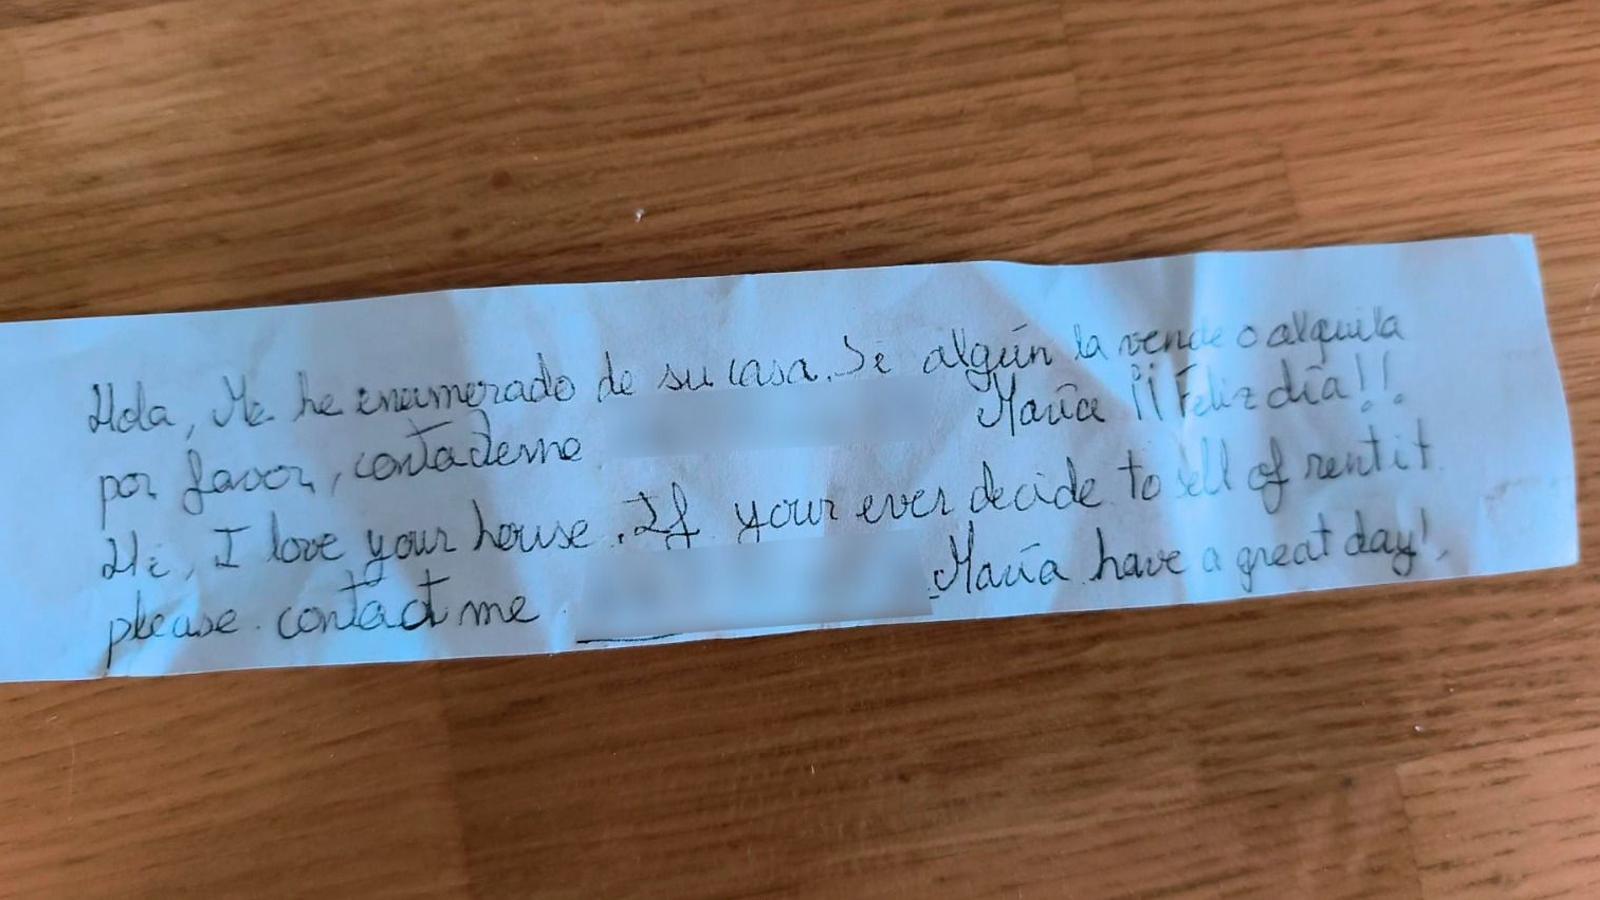 Hola, Me he enamorado de su casa. Si algún la vende o alquila
por favor, contacteme María ¡¡Feliz día!!
Hi, I love your house. If your ever decide to sell of rent it
please contact me María have a great day!